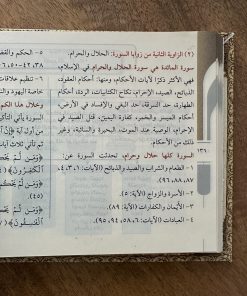 (٢) الزاوية الثانية من زوايا السورة: الحلال والحرام.
سورة المائدة هي سورة الحلال والحرام في الإسلام،
فهي أكثر ذكرًا لآيات الأحكام، ومنها: أحكام العقود،
الذبائح، الصيد، الإحرام، نكاح الكتابيات، الردة، أحكام
الطهارة، حد السرقة، حد البغي والإفساد في الأرض،
أحكام الميسر والخمر، كفارة اليمين، قتل الصيد في
الإحرام، الوصية عند الموت، البحيرة والسائبة، وغير
ذلك من الأحكام.
السورة كلها حلال وحرام، تحدثت السورة عن:
١- الطعام والشراب والصيد والذبائح (الآيات: ١، ٣، ٤،
٨٧، ٨٨، ٩٦).
٢- الأسرة والزواج (الآية: ٥).
٣- الأيمان والكفارات (الآية: ٨٩).
٤- العبادات (الآيات: ٦، ٥٨، ٩٤، ٩٥).
١٣٦
٥- الحكم والقضاء
٦- تنظيم علاقات
خاصة اليهود والنصارى
وخلال هذا الكم
السورة يأتي التأكيد
من أول آية ﴿إن
ثم تأتي ثلاث آيات
﴿ومن لم يحكم
الكافرون﴾
﴿ومن لم يحكم
(٤٥)
﴿ومن لم يحكم